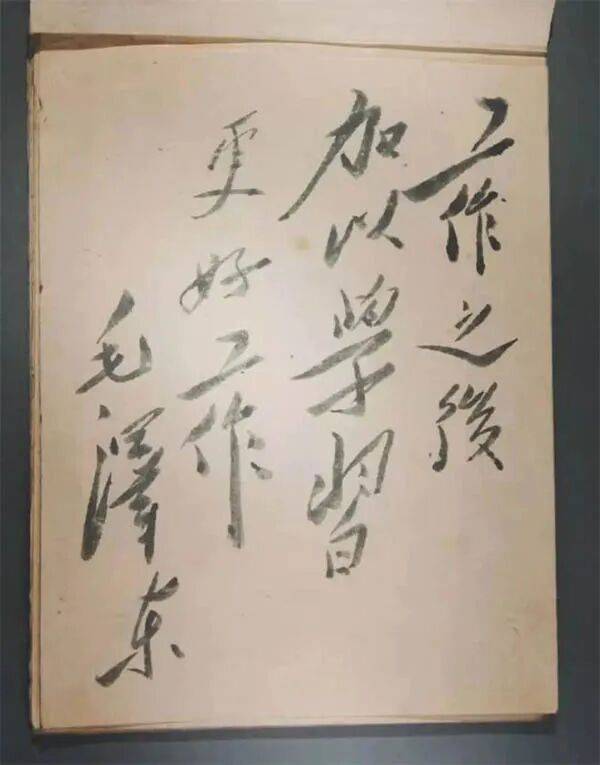 工作之後
加以學習
更好工作
毛澤东